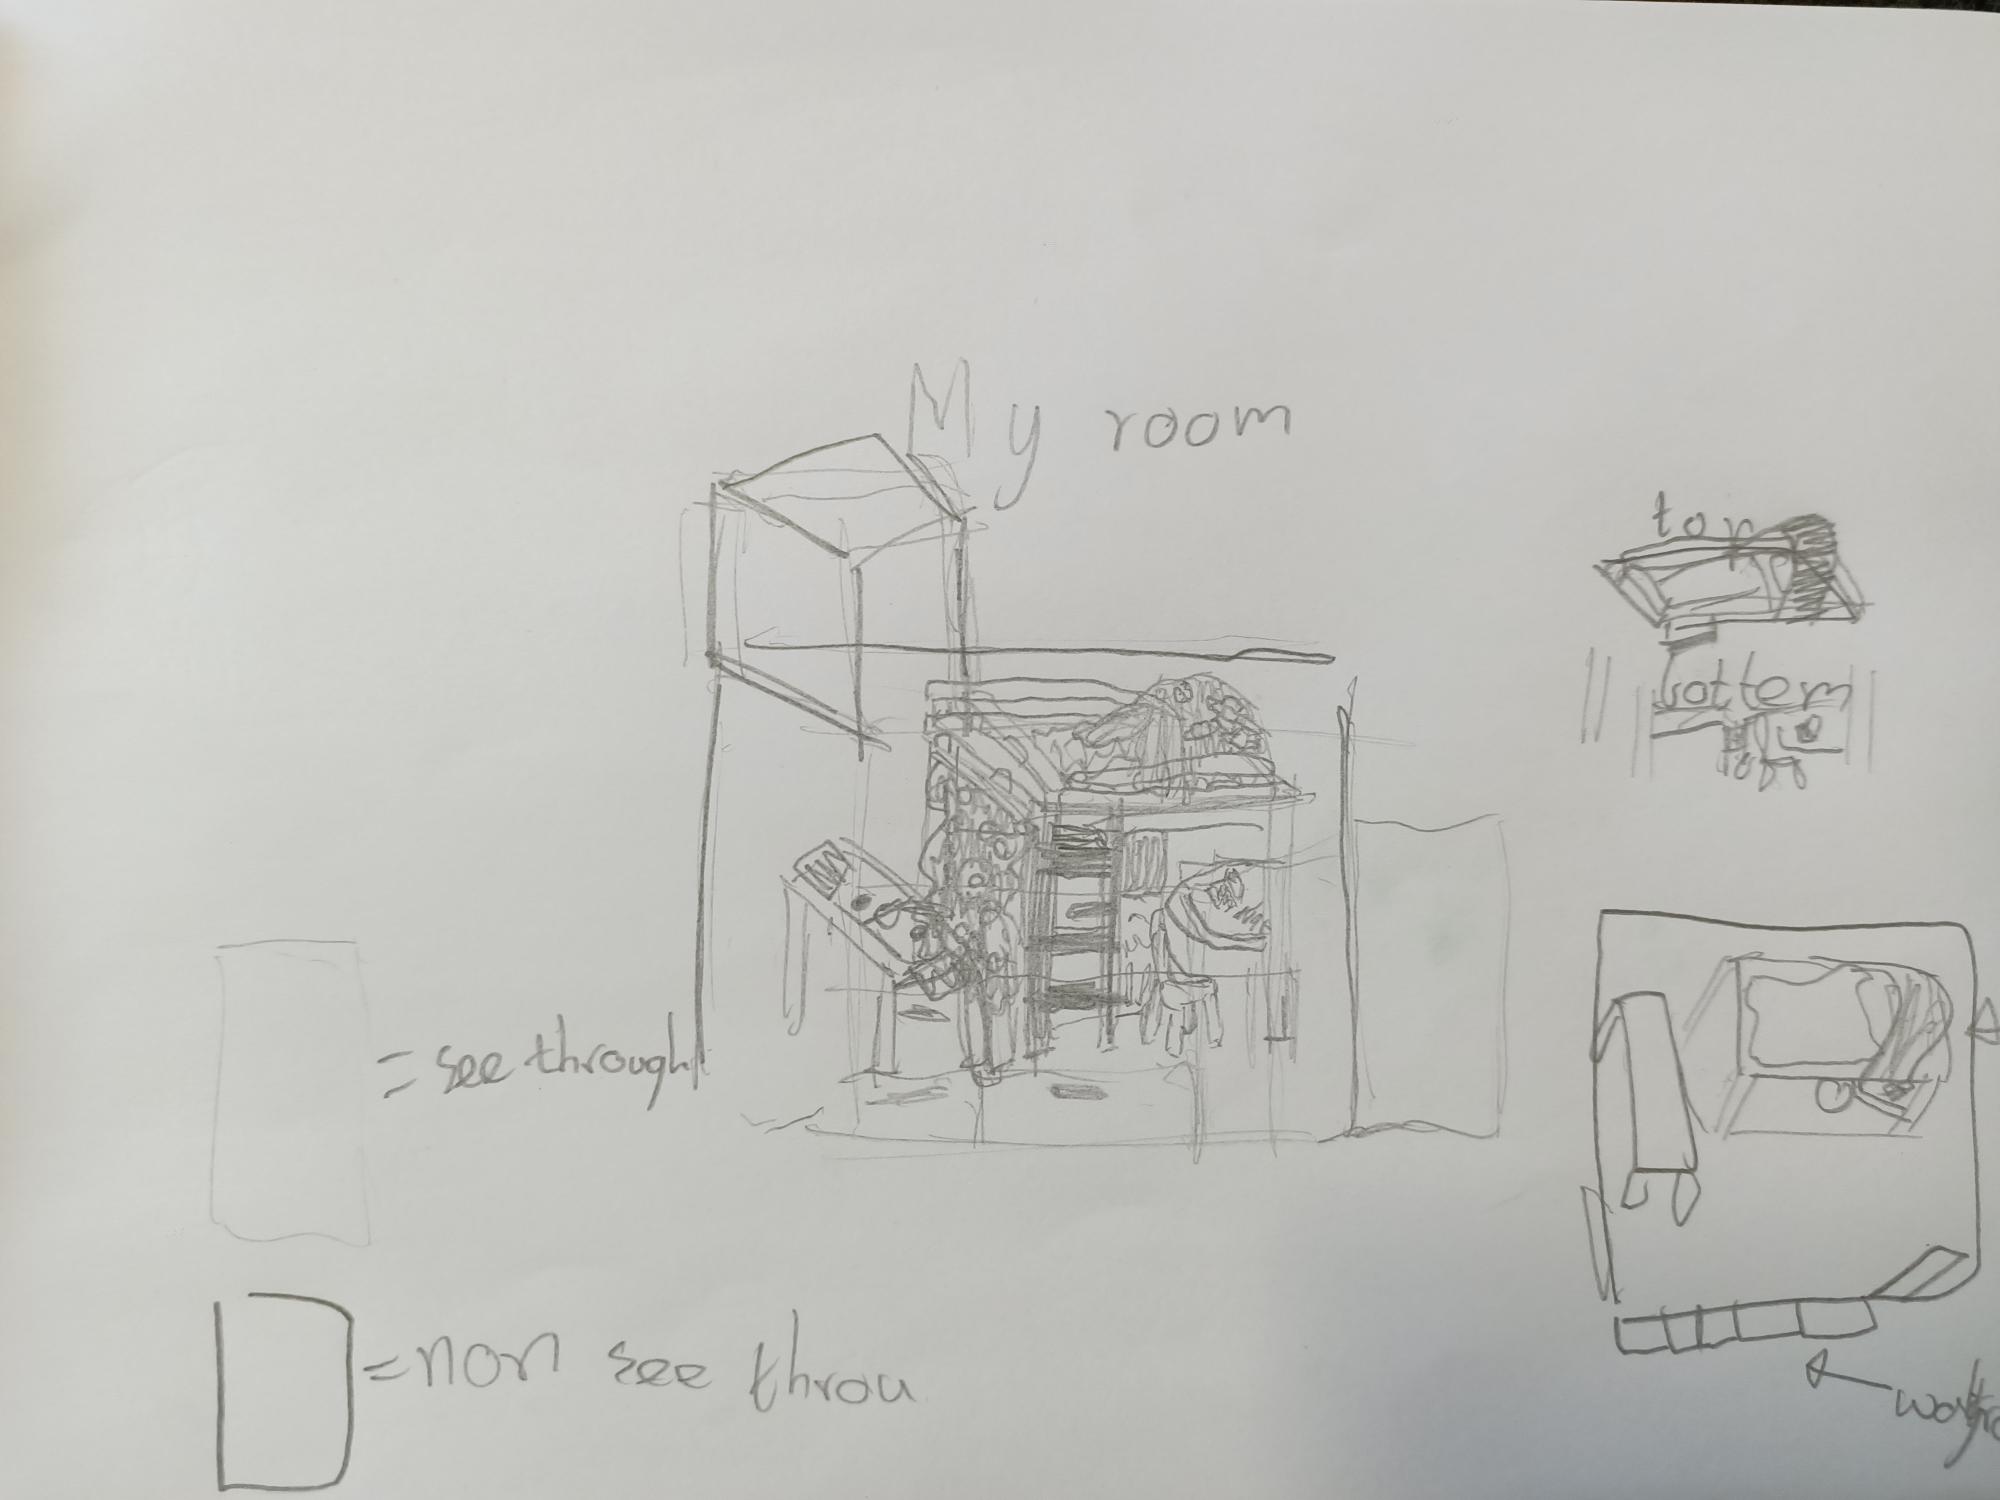 My room
top
bottem
= see throught
= non see throu